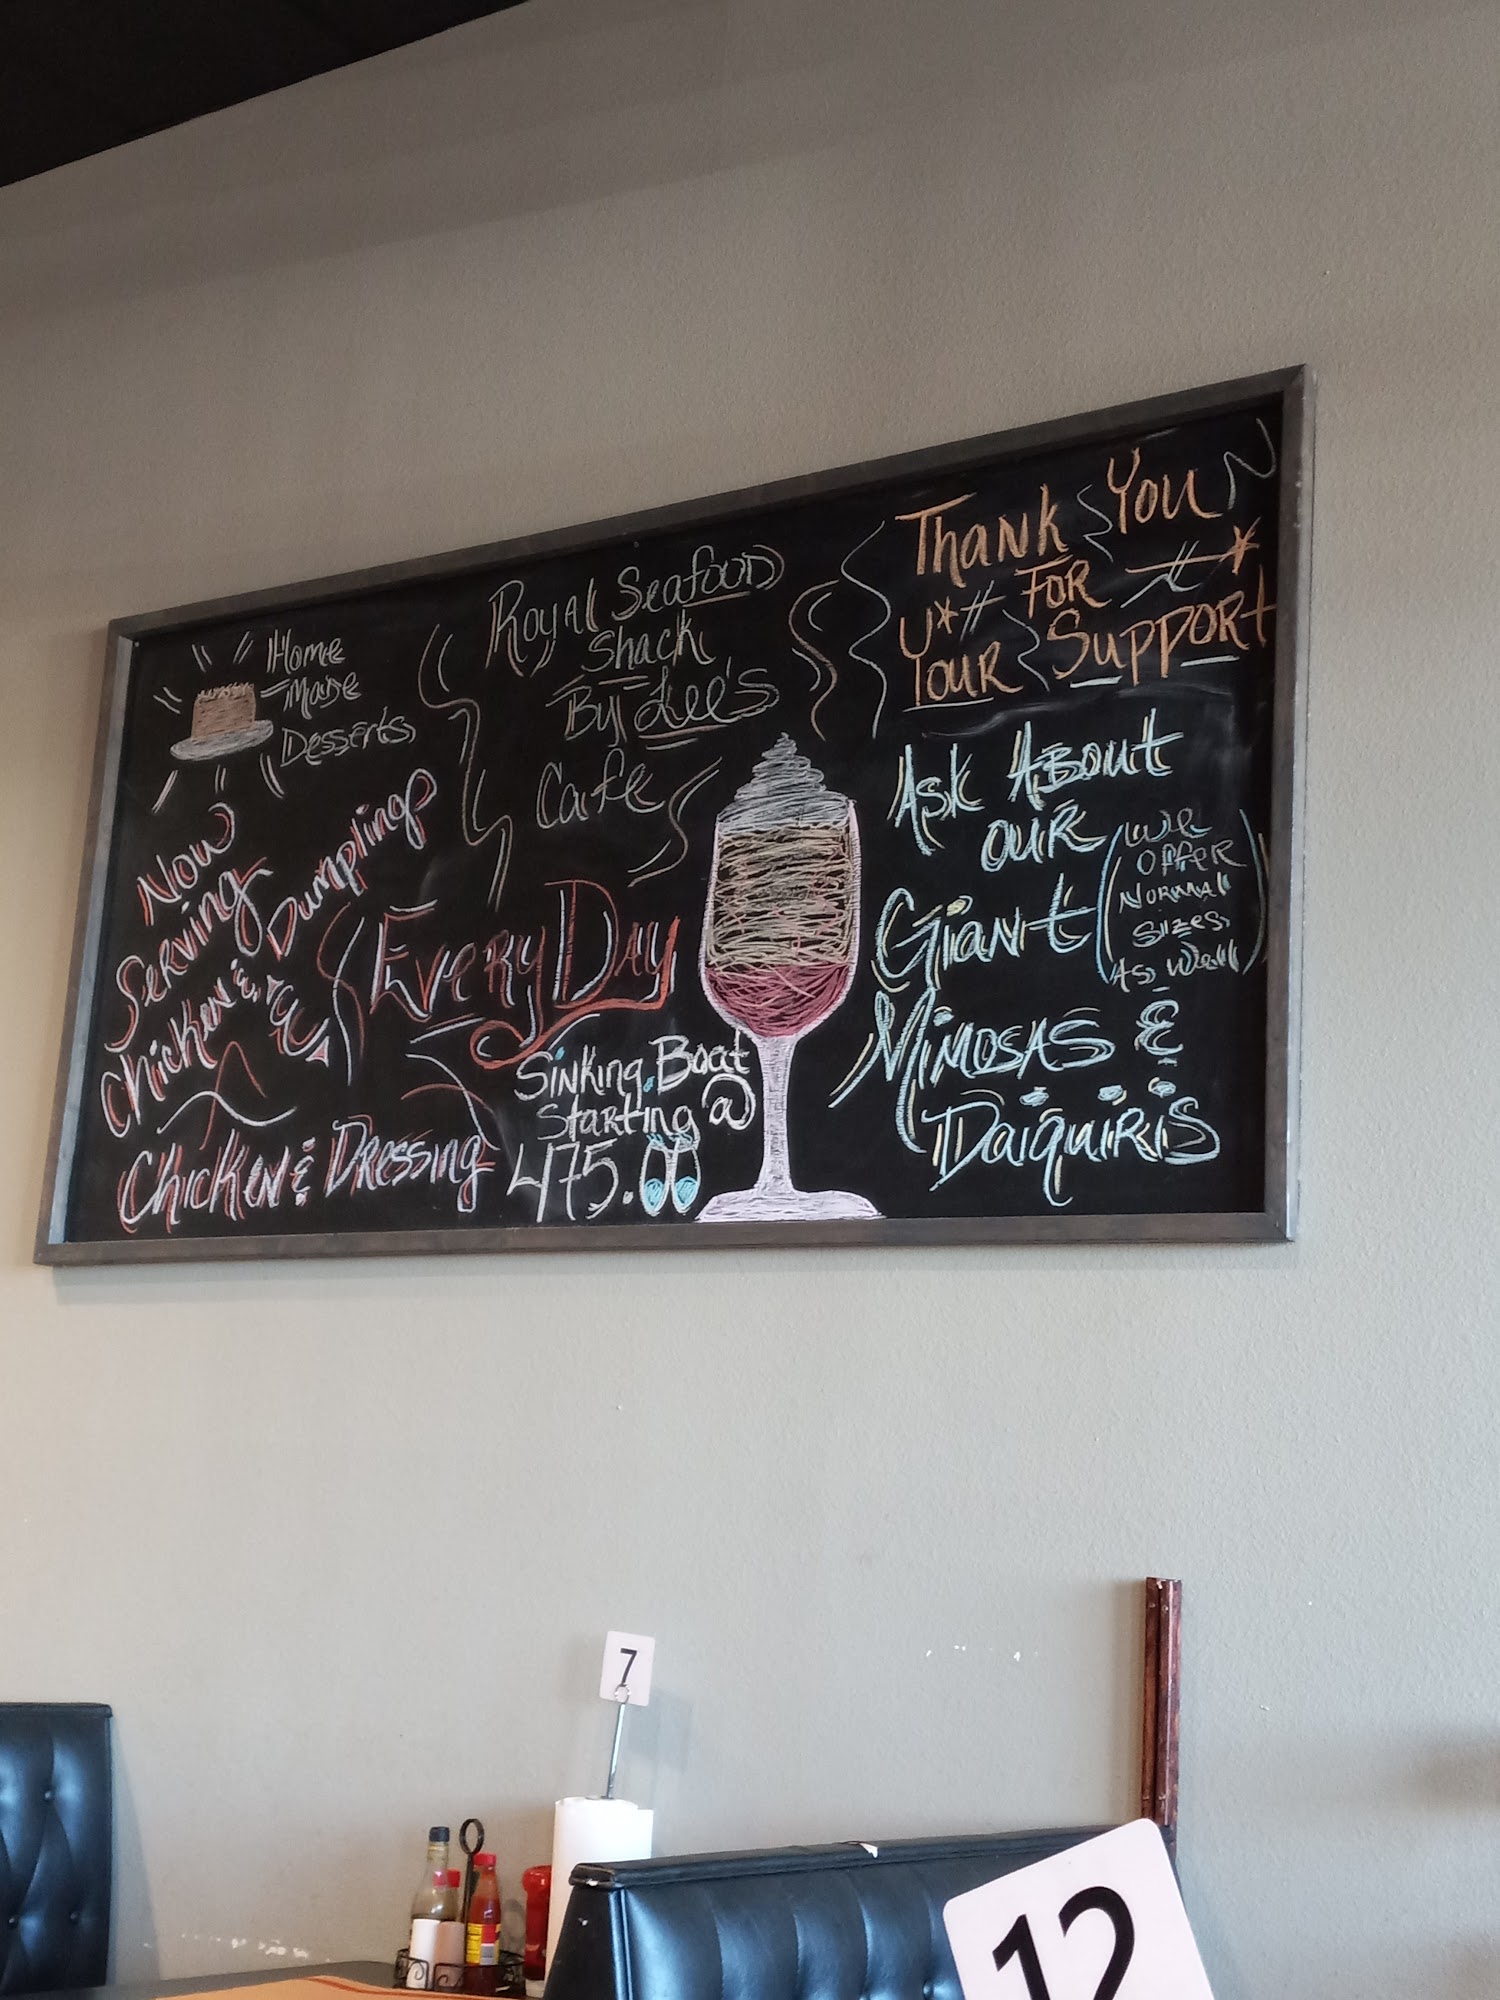 Home
Made
Desserts
Royal Seafood
Shack
By Lee's
Cafe
Thank You
FOR
Your Support
Now
Serving
Chicken &
Dumplings
Every Day
Chicken & Dressing
Sinking Boat
Starting @
475.00
Ask About
our
Giant
(We
Offer
Normal
Sizes
As Well)
Mimosas &
Daiquiris
7
12